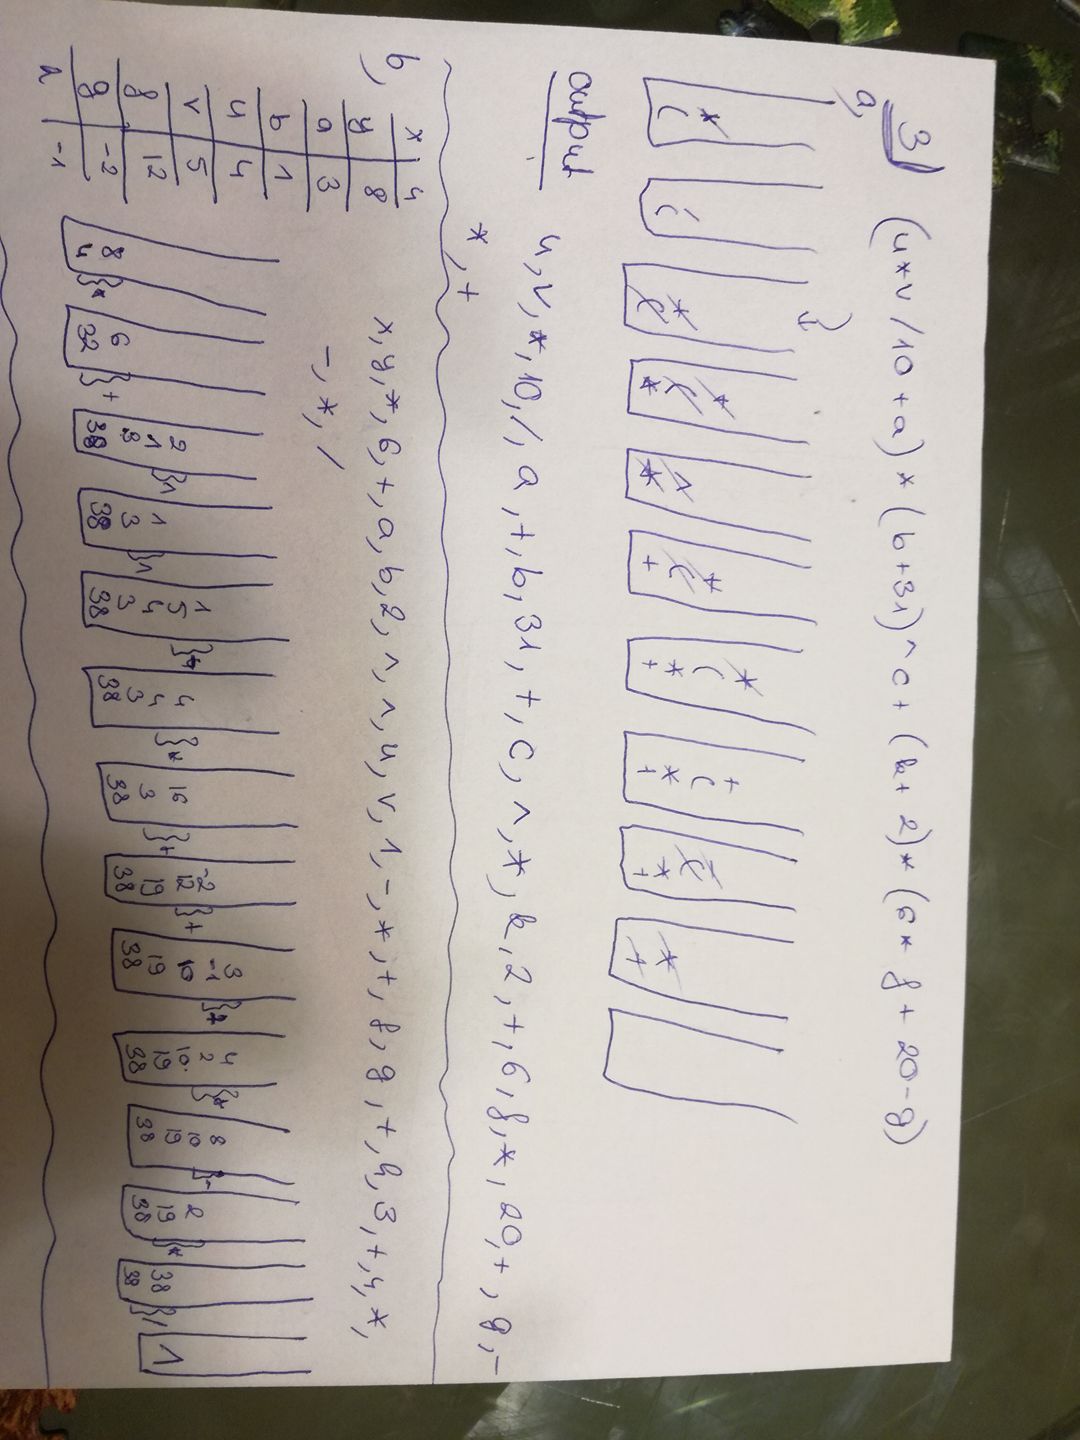 3) (u*v/10+a)*(b+31)^c+(k+2)*(6*f+20-g)
a,
output
u,v,*,10,/,a,+,b,31,+,c,^,*,k,2,+,6,f,*,20,+,g,-
*,+
b,
x 4
y 8
a 3
b 1
u 4
v 5
f 12
g -2
h -1
x,y,*,6,+,a,b,2,^,^,u,v,1,-,*,+,f,g,+,h,3,+,4,*,
-,*,/
8
4
6
32
2
1
3
38
1
3
38
1
5
4
3
38
4
4
3
38
16
3
38
-2
12
19
38
3
-1
10
19
38
4
2
10
19
38
8
10
19
38
2
19
38
38
38
1